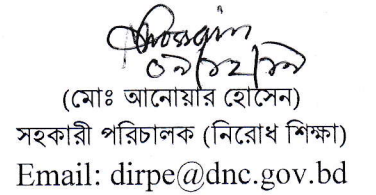 ০৯/১২/১৯
(মোঃ আনোয়ার হোসেন)
সহকারী পরিচালক (নিরোধ শিক্ষা)
Email: dirpe@dnc.gov.bd